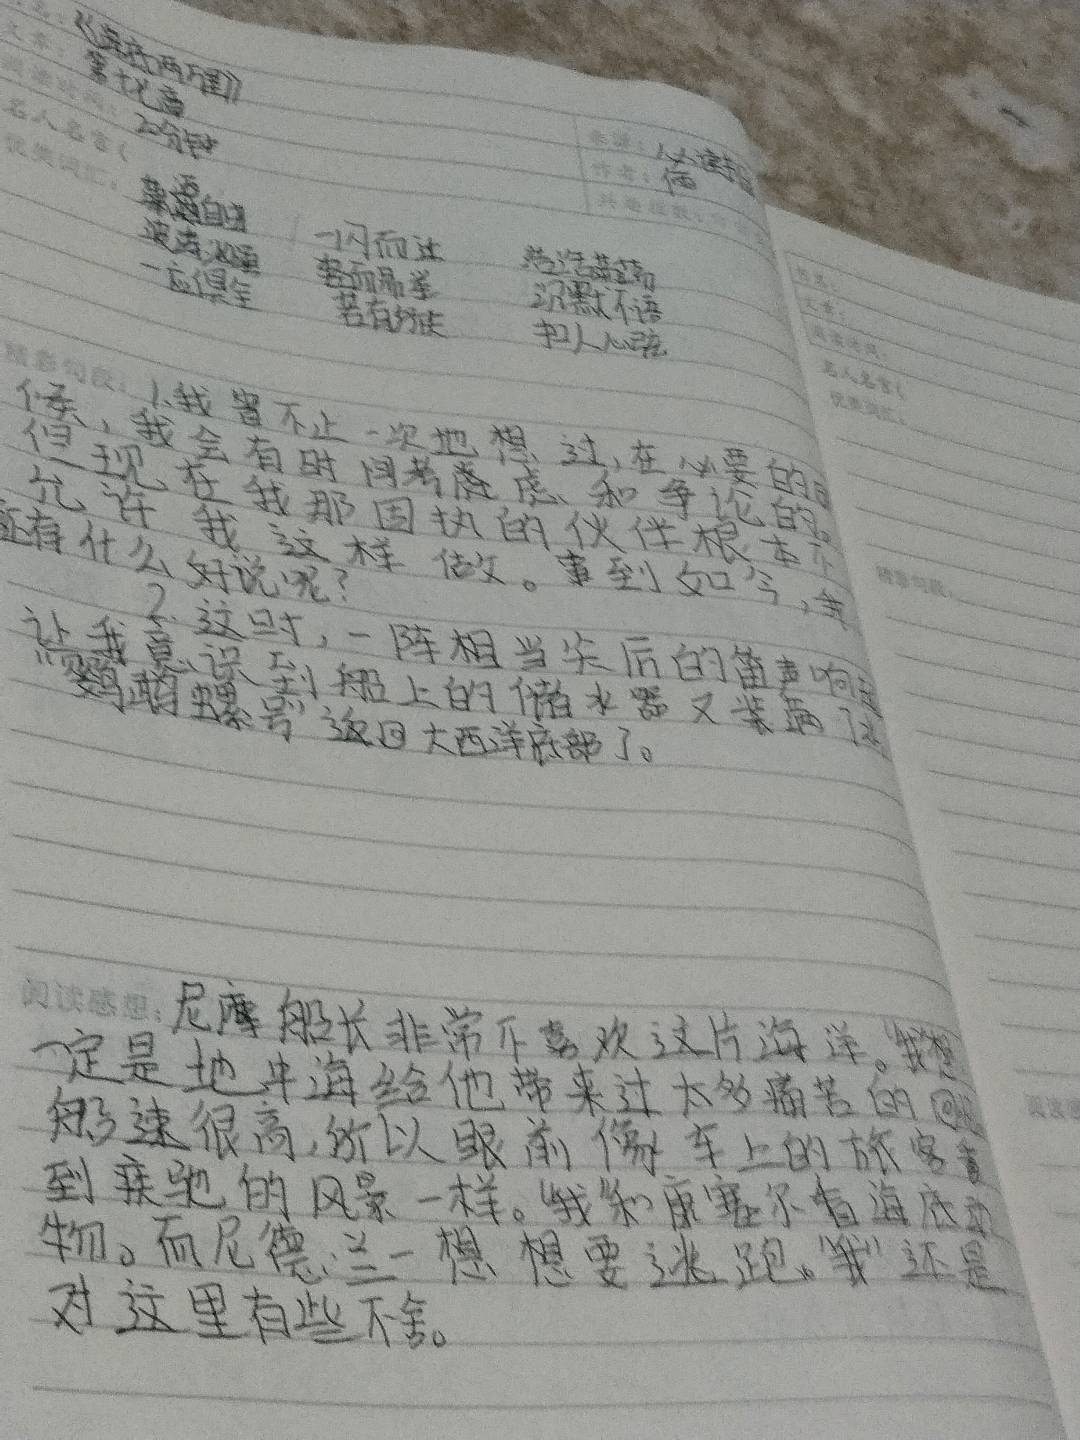 《海底两万里》
文章：第十七章
阅读时间：20分钟
来源：必读书目
作者：
名人名言（
优美词汇：
一闪而过
波涛汹涌 轻而易举 沉默不语
一应俱全 若有所失 扣人心弦
精彩句段：1.我曾不止一次地想过，在必要的时
候，我会有时间考虑虑、和争论的。
但现在我那固执的伙伴根本不
允许我这样做。事到如今，我
还有什么好说呢？
2.这时，一阵相当尖后的笛声响起
让我意识到船上的储水器又装满了水
“鹦鹉螺号”返回大西洋底部了。
阅读感想：尼摩船长非常不喜欢这片海洋。“我”想
一定是地中海给他带来过太多痛苦的回忆
船速很高，所以眼前像车上的旅客看
到疾驰的风景一样。“我”和康塞尔看海底动
物。而尼德、兰一想想要逃跑。“我”还是
对这里有些不舍。
文章：
阅读时间：
名人名言（
优美词汇：
精彩句段：